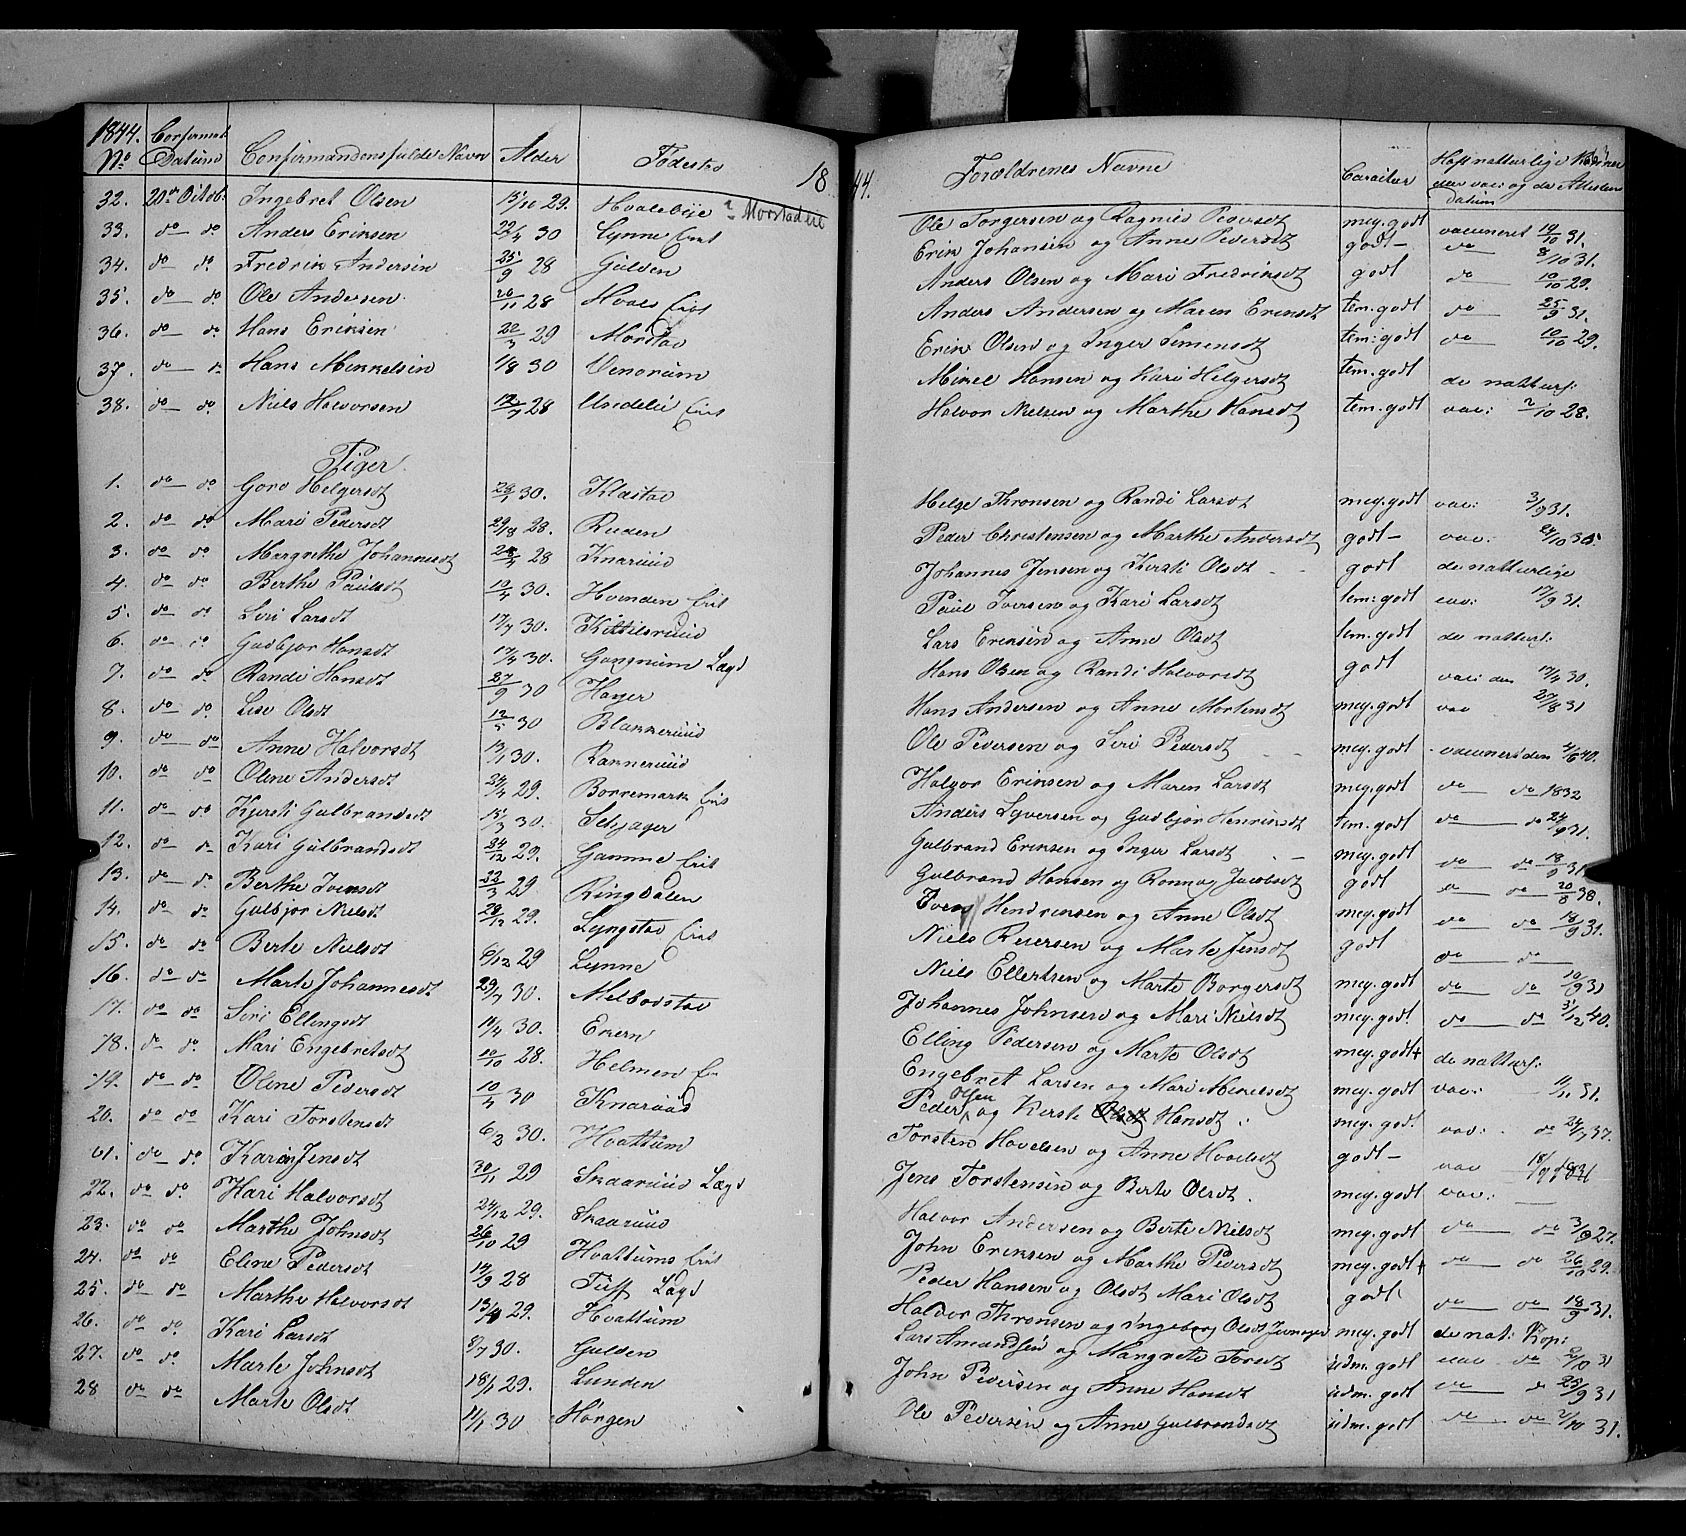 1844. Confirmat. 18 44.
No Datum Confirmandens fulde Navn Alder Fødested Forældrenes Navne Caracter
32. 20de Octob: Ingebret Olsen 15/10 29. Hvalebye Ole Torgersen og Ragnild Pedersdt meg. godt vaccineret 19/10 31.
33. do do Anders Eriksen 22/4 30 Lynne Eiet Erik Johansen og Anne Pedersdt godt do 8/10 31.
34. do do Fredrik Andersen 25/9 28 Gulden Anders Olsen og Mari Fredriksdt godt do 10/10 29.
35. do do Ole Andersen 26/11 28 Hvals Eiet Anders Andersen og Maren Eriksdt tem. godt do 25/9 31.
36. do do Hans Eriksen 22/3 29 Morstad Erik Olsen og Inger Simensdt tem: godt do 10/10 29.
37. do do Hans Mikkelsen 1/8 30 Venorum Mikel Hansen og Kari Helgersdt tem. godt de natturl:
38. do do Niels Halvorsen 12/7 28 Undelie Eiet Halvor Nielsen og Marthe Hansdt tem. godt vac: 2/10 28.
Piger.
1. do do Goro Helgersdt 28/1 30. Klæstad Helge Thronsen og Randi Larsdt meg. godt vac: 3/9 31.
2. do do Mari Pedersdt 29/8 28. Ruden Peder Christensen og Marthe Andersdt godt vac: 24/10 30.
3. do do Margrethe Johannesdt 28/4 28 Knaruud Johannes Jensen og Kirsti Olsdt godt de natturlige
4. do do Berthe Paulsdt 10/4 30. Hvinden Eiet Paul Iversen og Kari Larsdt tem: godt vac: 17/9 31.
5. do do Siri Larsdt 17/7 30. Kittilsruud Lars Eriksen og Anne Olsdt tem. godt de natturl:
6. do do Gudbjør Hansdt 17/4 30. Gangnum Lægd Hans Olsen og Randi Halvorsdt godt vac: den 17/4 30.
7. do do Randi Hansdt 27/9 30 Hager Hans Andersen og Anne Mortensdt meg. godt vac 27/8 31
8. do do Lise Olsdt 12/5 30 Blakkeruud Ole Pedersen og Siri Pedersdt meg. godt vaccineret den 4/6 40.
9. do do Anne Halvorsdt 13/1 30. Rakkeruud Halvor Eriksen og Maren Larsdt meg. godt do do 1832
10. do do Oline Andersdt 24/4 29. Borremark Eiet Anders Syversen og Gudbjør Henriksdt tem. godt do do 24/9 31.
11. do do Kjersti Gulbrandsdt 15/3 30. Seljager Gulbrand Eriksen og Inger Larsdt meg. godt do do 18/9 31
12. do do Kari Gulbrandsdt 24/12 29. Gamme Eiet Gulbrand Hansen og Ronnog Jacobsdt godt do do 20/8 38.
13. do do Berthe Iversdt 22/3 29 Ringdalen Iver Hendriksen og Anne Olsdt meg. godt do do 18/9 31.
14. do do Gulbjør Nielsdt 29/12 29. Lyngstad Eiet Niels Reiersen og Marte Jensdt godt do do
15. do do Berte Nielsdt 6/12 29 Lynne Niels Ellertsen og Marte Borgersdt meg. godt do do 10/9 31
16. do do Marte Johannesdt 29/7 30. Melbodstad Johannes Johnsen og Mari Nielsdt meg. godt do do 31/12 40.
17. do do Siri Ellingsdt 14/4 30. Ekern Elling Pedersen og Marte Olsdt meg. godt+ de natturl:
18. do do Mari Engebretsdt 10/10 28. Helmen Engebret Larsen og Mari Mikelsdt meg. godt vac: 11/11 31.
19. do do Oline Pedersdt 10/4 30 Knaruud Peder Olsen og Kirsti Hansdt meg. god. vac: do 24/7 37.
20. do do Kari Torstensdt 6/2 30. Hvattum Torsten Hovelsen og Anne Hovelsdt godt vac 18/9
21. do do Karen Jensdt 30/11 29 Skaaruud Lægd Jens Torstensen og Berte Olsdt. meg. godt vac:
22. do do Kari Halvorsdt 24/12 29. Skaaruud Halvor Andersen og Berte Nielsdt meg. godt do do 3/9 27.
23. do do Marthe Johnsdt 26/10 29 Hvattums Eiet John Eriksen og Marthe Pedersdt meg. godt+ do do 26/10 29.
24. do do Eline Pedersdt 14/9 28 Tuff Lægd Peder Hansen og Olsdt Mari Olsdt godt do do 18/9 31.
25. do do Marthe Halvorsdt 13/4 29. Hvattum Halvor Thronsen og Ingeborg Olsdt meg. godt de nat: Kop:
26. do do Kari Larsdt 8/7 30. Gulden Lars Amundsen og Margrete Torsdt udm. godt vac do 2/10 31
27. do do Marte Johnsdt 18/1 29. Lunden John Pedersen og Anne Hansdt udm. godt do do 25/9 31
28 do do Marte Olsdt 11/1 30 Horgen Ole Pedersen og Anne Gulbrandsdt udm. godt do do 2/10 31.